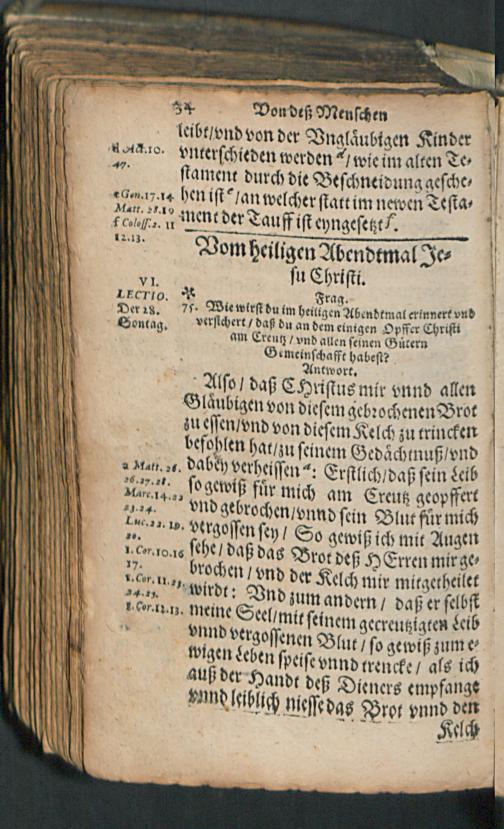 34 Von deß Menschen
leibt/vnd von der Vngläubigen Kinder
vnterschieden werden d/ wie im alten Te-
stament durch die Beschneidung gesche-
hen ist e/ an welcher statt im newen Testa-
ment der Tauff ist eyngesetzt f.
d Act.10.
47.
e Gen.17.14
Matt. 28.19
f Coloss.2. 11
12.13.
Vom heiligen Abendtmal Je-
su Christi.
VI.
LECTIO.
Der 28.
Sontag.
Frag.
75. Wie wirst du im heiligen Abendtmal erinnert vnd
versichert / daß du an dem einigen Opffer Christi
am Creutz / vnd allen seinen Gütern
Gemeinschafft habest?
Antwort.
Also / daß CHristus mir vnnd allen
Gläubigen von diesem gebrochenen Brot
zu essen/vnd von diesem Kelch zu trincken
befohlen hat/zu seinem Gedächtnuß/vnd
dabey verheissen a: Erstlich/daß sein Leib
so gewiß für mich am Creutz geopffert
vnd gebrochen/vnnd sein Blut für mich
vergossen sey / So gewiß ich mit Augen
sehe / daß das Brot deß HErren mir ge-
brochen / vnd der Kelch mir mitgetheilet
wirdt: Vnd zum andern / daß er selbst
meine Seel/mit seinem gecreutzigten Leib
vnnd vergossenen Blut / so gewiß zum e-
wigen Leben speise vnnd trencke / als ich
auß der Handt deß Dieners empfange
vnnd leiblich niesse das Brot vnnd den
Kelch
a Matt. 26.
26.27.28.
Marc.14.22
23.24.
Luc.22. 19.
20.
1. Cor.10.16
17.
1. Cor. 11.23.
24.25.
1. Cor.12.13.